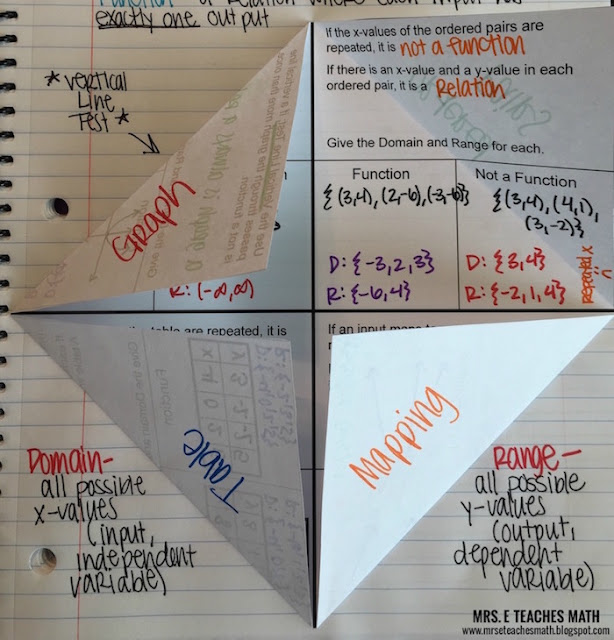 Function - a relation where each input has
exactly one output
* vertical
Line
Test *
Graph
If the x-values of the ordered pairs are
repeated, it is not a function
If there is an x-value and a y-value in each
ordered pair, it is a Relation
Give the Domain and Range for each.
Function
{(3,4), (2,-6), (-3,-6)}
D: {-3,2,3}
R: {-6,4}
Not a Function
{(3,4), (4,1),
(3,-2)}
D: {3,4}
R: {-2,1,4}
repeated x
R: (-∞,∞)
table are repeated, it is
If an input maps to
Table
Mapping
Domain-
all possible
x-values
(input,
independent
variable)
Range-
all possible
y-values
(output,
dependent
variable)
MRS. E TEACHES MATH
www.mrseteachesmath.blogspot.com